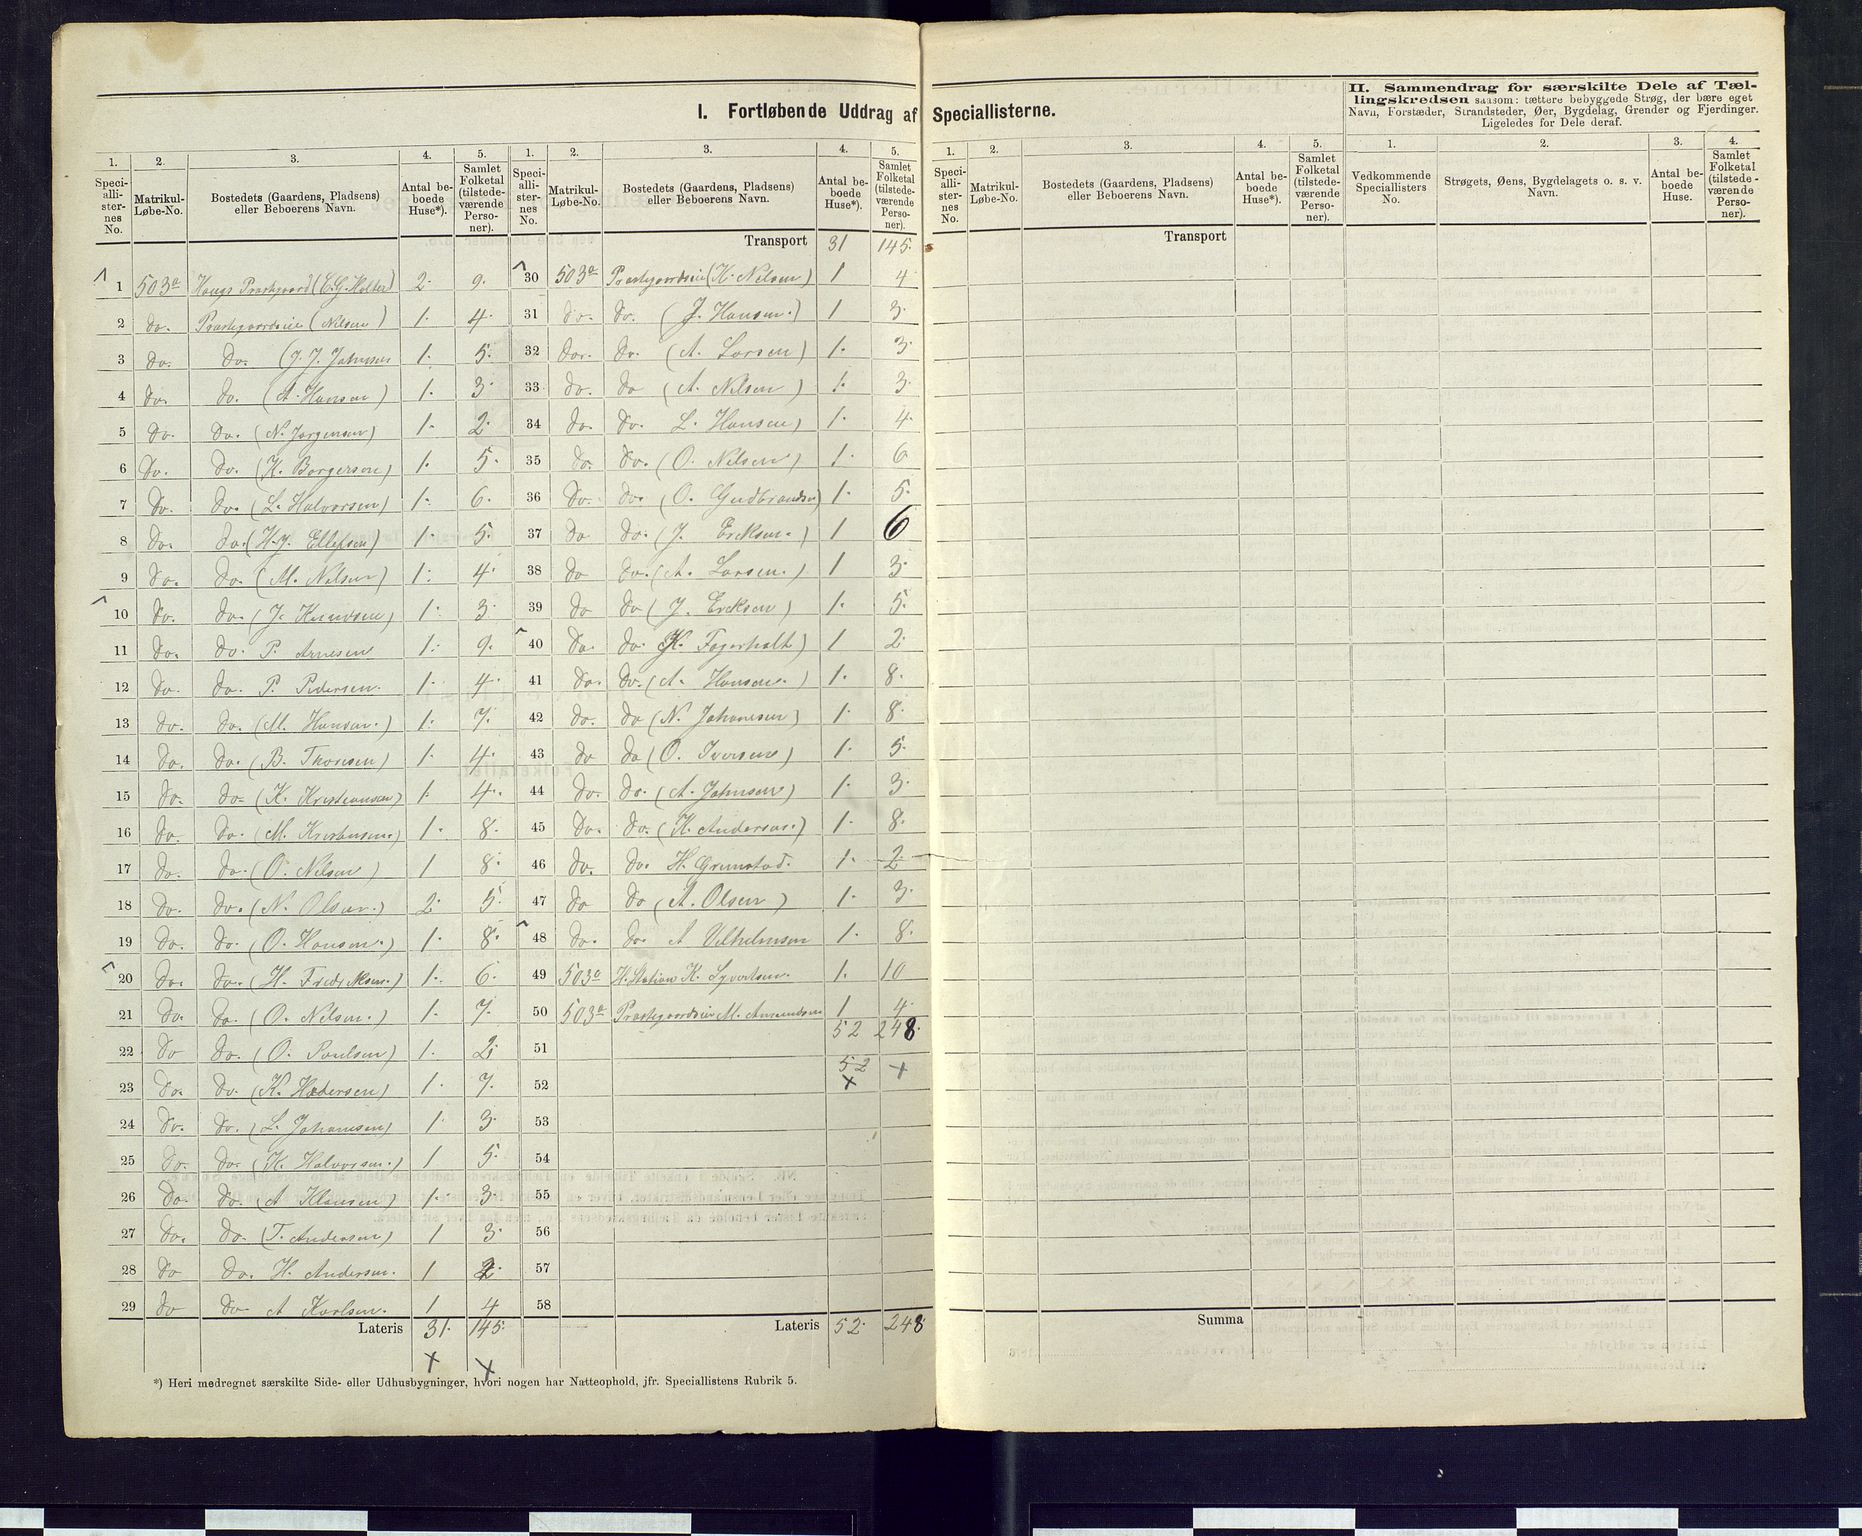 I. Fortløbende Uddrag af Speciallisterne.
II. Sammendrag for særskilte Dele af Tæl-
lingskredsen saasom: tættere bebyggede Strøg, der bære eget
Navn, Forstæder, Strandsteder, Øer, Bygdelag, Grender og Fjerdinger.
Ligeledes for Dele deraf.
1. 2. 3. 4. 5. 1. 2. 3. 4. 5. 1. 2. 3. 4. 5. 1. 2. 3. 4.
Speci-alli-ster-nes No. Matrikul-Løbe-No. Bostedets (Gaardens, Pladsens) eller Beboerens Navn. Antal be-boede Huse*). Samlet Folketal (tilstede-værende Perso-ner).
Speci-alli-ster-nes No. Matrikul-Løbe-No. Bostedets (Gaardens, Pladsens) eller Beboerens Navn. Antal be-boede Huse*). Samlet Folketal (tilstede-værende Perso-ner).
Speci-alli-ster-nes No. Matrikul-Løbe-No. Bostedets (Gaardens, Pladsens) eller Beboerens Navn. Antal be-boede Huse*). Samlet Folketal (tilstede-værende Perso-ner).
Vedkommende Speciallisters No. Strøgets, Øens, Bygdelagets o. s. v. Navn. Antal be-boede Huse. Samlet Folketal (tilstede-værende Perso-ner).
1 503a Haugs Præstgaard (E. G. Holter) 2. 9.
2 Do. Præstegaardseie (Nilsen) 1. 4.
3 Do. Do. (J. J. Johnsen 1. 5.
4 Do. Do. (A. Hansen) 1. 3.
5 Do. Do. (N. Jørgensen) 1. 2.
6 Do. Do. (K. Borgersen) 1. 5.
7 Do. Do. (L. Halvorsen) 1. 6.
8 Do. Do. (H. J. Ellefsen) 1. 5.
9 Do. Do. (M. Nilsen) 1. 4.
10 Do. Do. (J. Knudsen) 1. 3.
11 Do. Do. P. Arnesen 1. 9.
12 Do. Do. P. Pedersen. 1. 4.
13 Do. Do. (M. Hansen.) 1. 7.
14 Do. Do. (B. Thoresen) 1. 4.
15 Do. Do. (K. Kristiansen) 1. 4.
16 Do. Do. (M. Kristensen.) 1. 8.
17 Do. Do. (O. Nilsen) 1 8.
18 Do. Do. (N. Olsen.) 2. 5.
19 Do. Do. (O. Hansen.) 1. 8.
20 Do. Do. (H. Fredriksen.) 1. 6.
21 Do. Do. (O. Nelsen.) 1. 7.
22 Do Do. (O. Poulsen) 1. 2.
23 Do. Do. (K. Hedersen) 1. 7.
24 Do. Do. (L. Johansen) 1. 3.
25 Do. Do. (K. Halvorsen.) 1 5.
26 Do. Do. (A Klausen) 1. 3.
27 Do. Do. (T. Andersen) 1 3.
28 Do Do. H. Andersen. 1 2.
29 Do Do A Karlsen. 1 4
Lateris 31. 145.
Transport 31 145.
30 503a Præstegaardseie (K. Nilsen) 1 4
31 Do. Do. (J. Hansen.) 1 3.
32 Do. Do. (A. Larsen) 1. 3.
33 Do. Do (A. Nilsen) 1. 3.
34 Do. Do. L. Hansen) 1. 4.
35 Do. Do. (O. Nilsen) 1. 6
36 Do. Do. (O. Gudbrandsen) 1. 5.
37 Do Do. (J. Ericksen.) 1 6
38 Do Do. (A. Larsen.) 1 3.
39 Do Do (J. Ericksen) 1. 5.
40 Do. Do. K. Fagerholt) 1 2
41 Do. Do. (A. Hansen.) 1. 8.
42 Do. Do (N. Johansen) 1. 8.
43 Do Do (O. Iversen) 1. 5.
44 Do. Do. (A. Johnsen) 1. 3.
45 Do. Do. (K. Andersen.) 1. 8.
46 Do. Do. H. Grimstad. 1. 2
47 Do Do (A. Olsen) 1. 3.
48 Do. Do. A Vilhelmsen 1. 8.
49 503a H. Station K. Syvertsen. 1. 10
50 503a Præstegaardseie M. Amundsen 1 4.
51 52 248.
52 52
53
54
55
56
57
58
Lateris 52. 248
Transport
Summa
*) Heri medregnet særskilte Side- eller Udhusbygninger, hvori nogen har Natteophold, jfr. Speciallistens Rubrik 5.